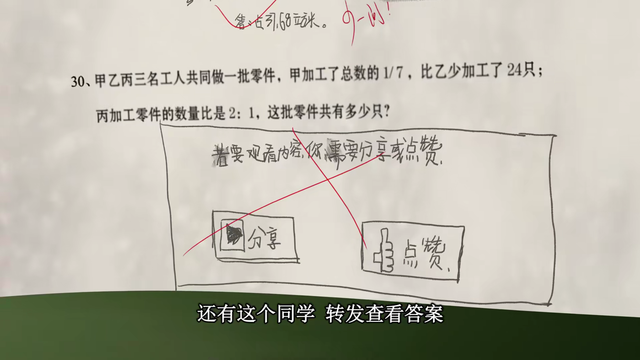 售:占31.68立方米。
少一问!
30、甲乙丙三名工人共同做一批零件，甲加工了总数的1/7，比乙少加工了24只；
丙加工零件的数量比是2：1，这批零件共有多少只？
若要观看内容,你需要分享或点赞
分享
点赞.
还有这个同学 转发查看答案